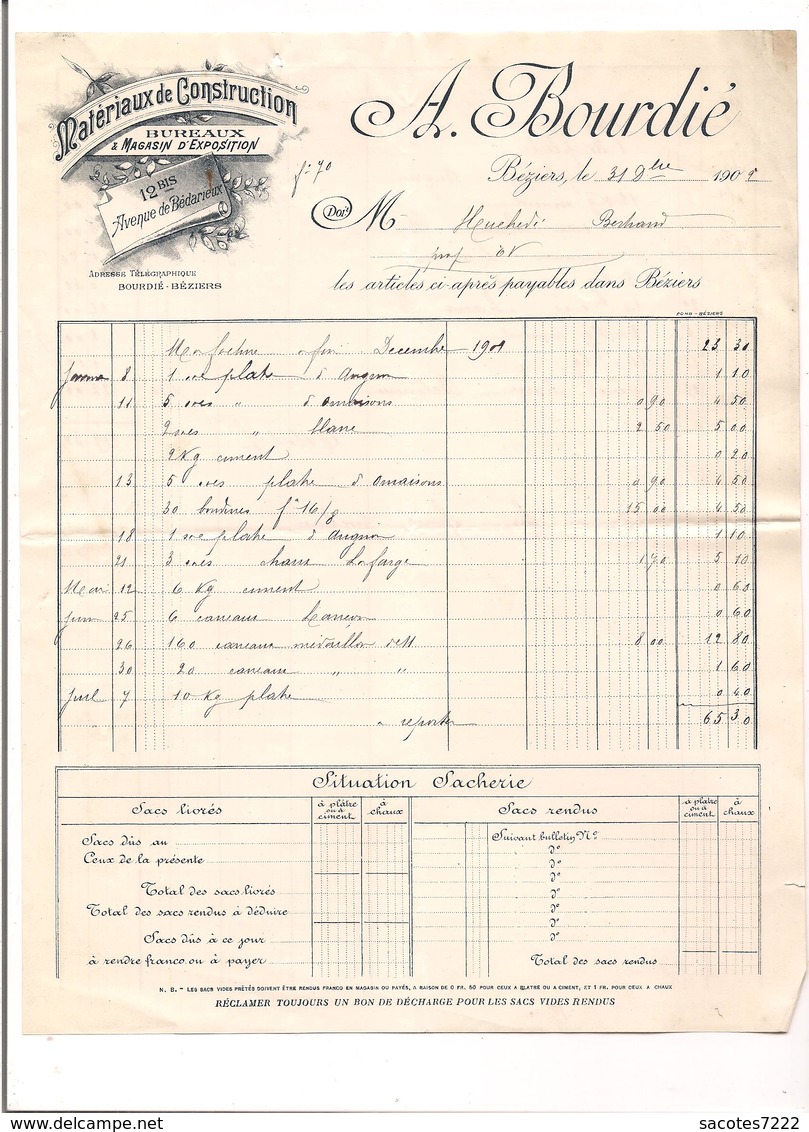 Matériaux de Construction
BUREAUX
& MAGASIN D'EXPOSITION
12 BIS
Avenue de Bédarieux
ADRESSE TÉLÉGRAPHIQUE
BOURDIÉ - BÉZIERS
A. Bourdié
fº 70
Béziers, le 31 Dbre 190
Doit M
les articles ci-après payables dans Béziers
POMB - BÉZIERS
Ma facture Decembre 1901 23 30
8 1 sac platre d 1 10
11 5 sacs " d 0 90 4 50
2 sacs " blanc 2 50 5 00
2 Kg ciment 0 20
13 5 sacs platre d 0 90 4 50
30 fº 16/8 15 00 4 50
18 1 sac platre d 1 10
21 3 sacs chaux Lafarge 1 70 5 10
12 6 Kg ciment 0 60
Juin 25 6 carreaux 0 60
26 160 carreaux médaillon 8 00 12 80
30 20 carreaux " " 1 60
Juil 7 10 Kg platre 0 40
a reporter 65 30
Situation Sacherie
Sacs livrés à plâtre ou à ciment à chaux Sacs rendus à plâtre ou à ciment à chaux
Sacs dûs au Suivant bulletin Nº
Ceux de la présente dº
dº
dº
Total des sacs livrés dº
Total des sacs rendus à déduire dº
dº
Sacs dûs à ce jour dº
à rendre franco ou à payer Total des sacs rendus
N. B. - LES SACS VIDES PRÊTÉS DOIVENT ÊTRE RENDUS FRANCO EN MAGASIN OU PAYÉS, A RAISON DE 0 FR. 50 POUR CEUX A PLATRE OU A CIMENT, ET 1 FR. POUR CEUX A CHAUX
RÉCLAMER TOUJOURS UN BON DE DÉCHARGE POUR LES SACS VIDES RENDUS
sacotes7222